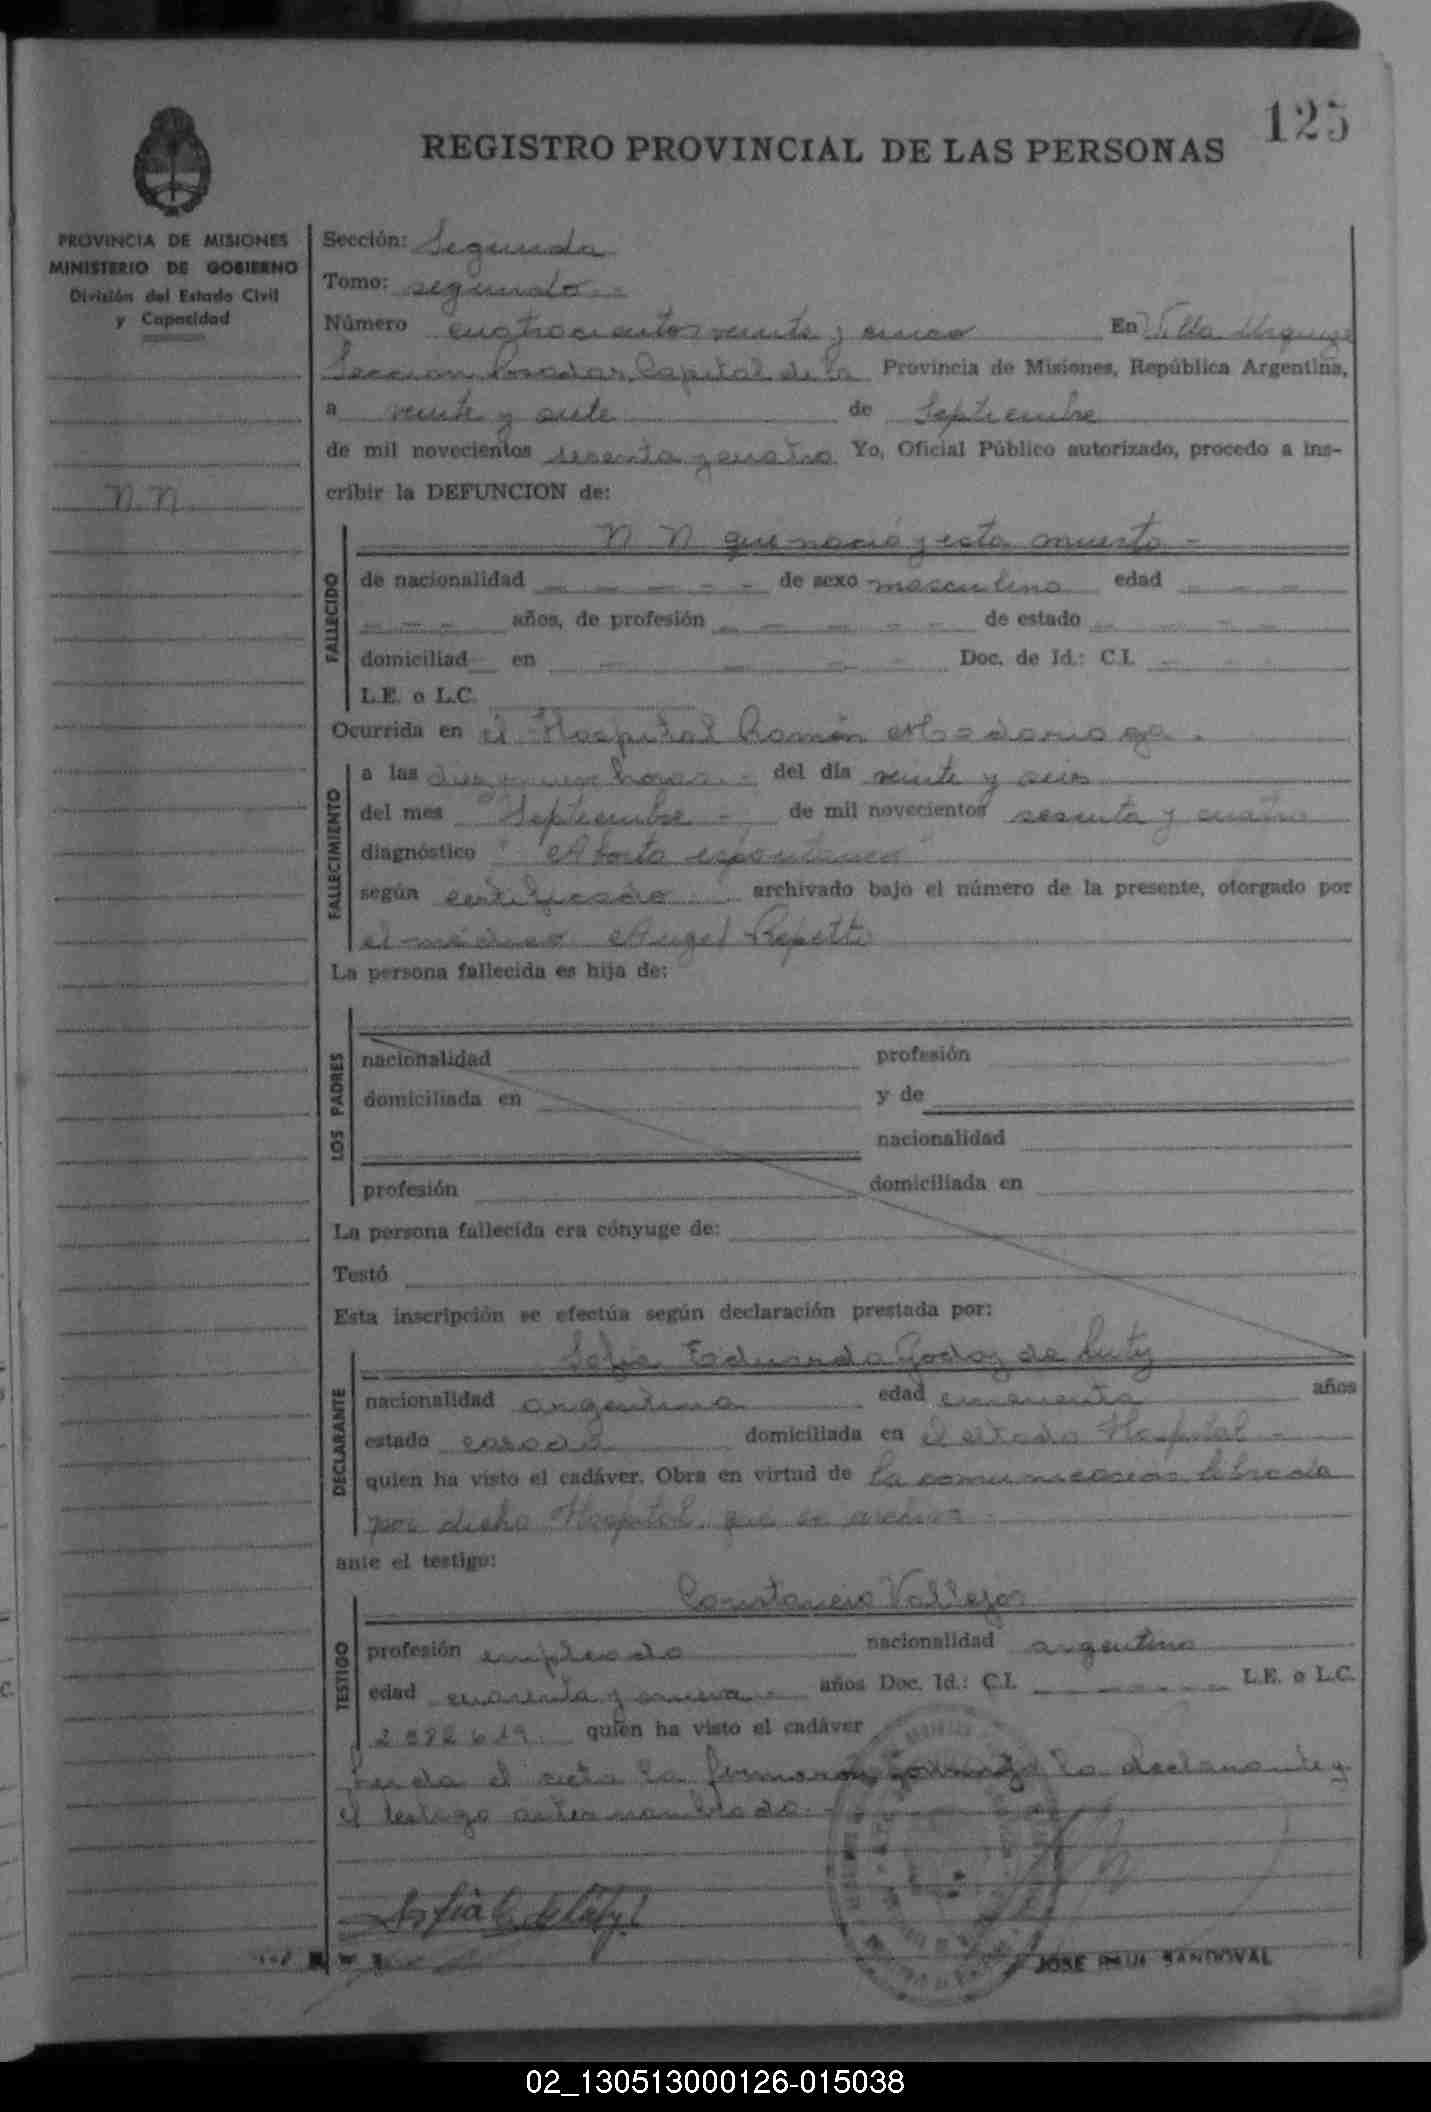 125
REGISTRO PROVINCIAL DE LAS PERSONAS
PROVINCIA DE MISIONES
MINISTERIO DE GOBIERNO
División del Estado Civil
y Capacidad
N.N.
Sección: Segunda
Tomo: segundo.-
Número cuatrocientos veinte y cinco En Villa Urquiza
Sección Posadas, Capital de la Provincia de Misiones, República Argentina,
a veinte y siete de Septiembre
de mil novecientos sesenta y cuatro Yo, Oficial Público autorizado, procedo a ins-
cribir la DEFUNCION de:
N N que nació y esta muerto -
FALLECIDO
de nacionalidad - - - - - de sexo masculino edad - - -
- - - años, de profesión - - - - - de estado - - - -
domiciliad en - - - - Doc. de Id.: C.I. - - -
L.E. o L.C.
Ocurrida en el Hospital Ramón Madariaga.
FALLECIMIENTO
a las horas.- del día veinte y seis
del mes Septiembre - de mil novecientos sesenta y cuatro
diagnóstico "Aborto espontaneo"
según certificado archivado bajo el número de la presente, otorgado por
el médico Angel Repetto
La persona fallecida es hija de:
LOS PADRES
nacionalidad profesión
domiciliada en y de
nacionalidad
profesión domiciliada en
La persona fallecida era cónyuge de:
Testó
Esta inscripción se efectúa según declaración prestada por:
Sofia Eduarda Godoy de
DECLARANTE
nacionalidad argentina edad años
estado casada domiciliada en el citado Hospital -
quien ha visto el cadáver. Obra en virtud de la comunicación librada
por dicho Hospital, que se archiva -
ante el testigo:
Constancio Vallejos
TESTIGO
profesión empleado nacionalidad argentino
edad cuarenta y nueve - años Doc. Id.: C.I. - - - - - L.E. o L.C.
quien ha visto el cadáver
Leída el acta la firmaron conmigo la declarante y
el testigo antes nombrado.-
JOSE RAUL SANDOVAL
02_130513000126-015038